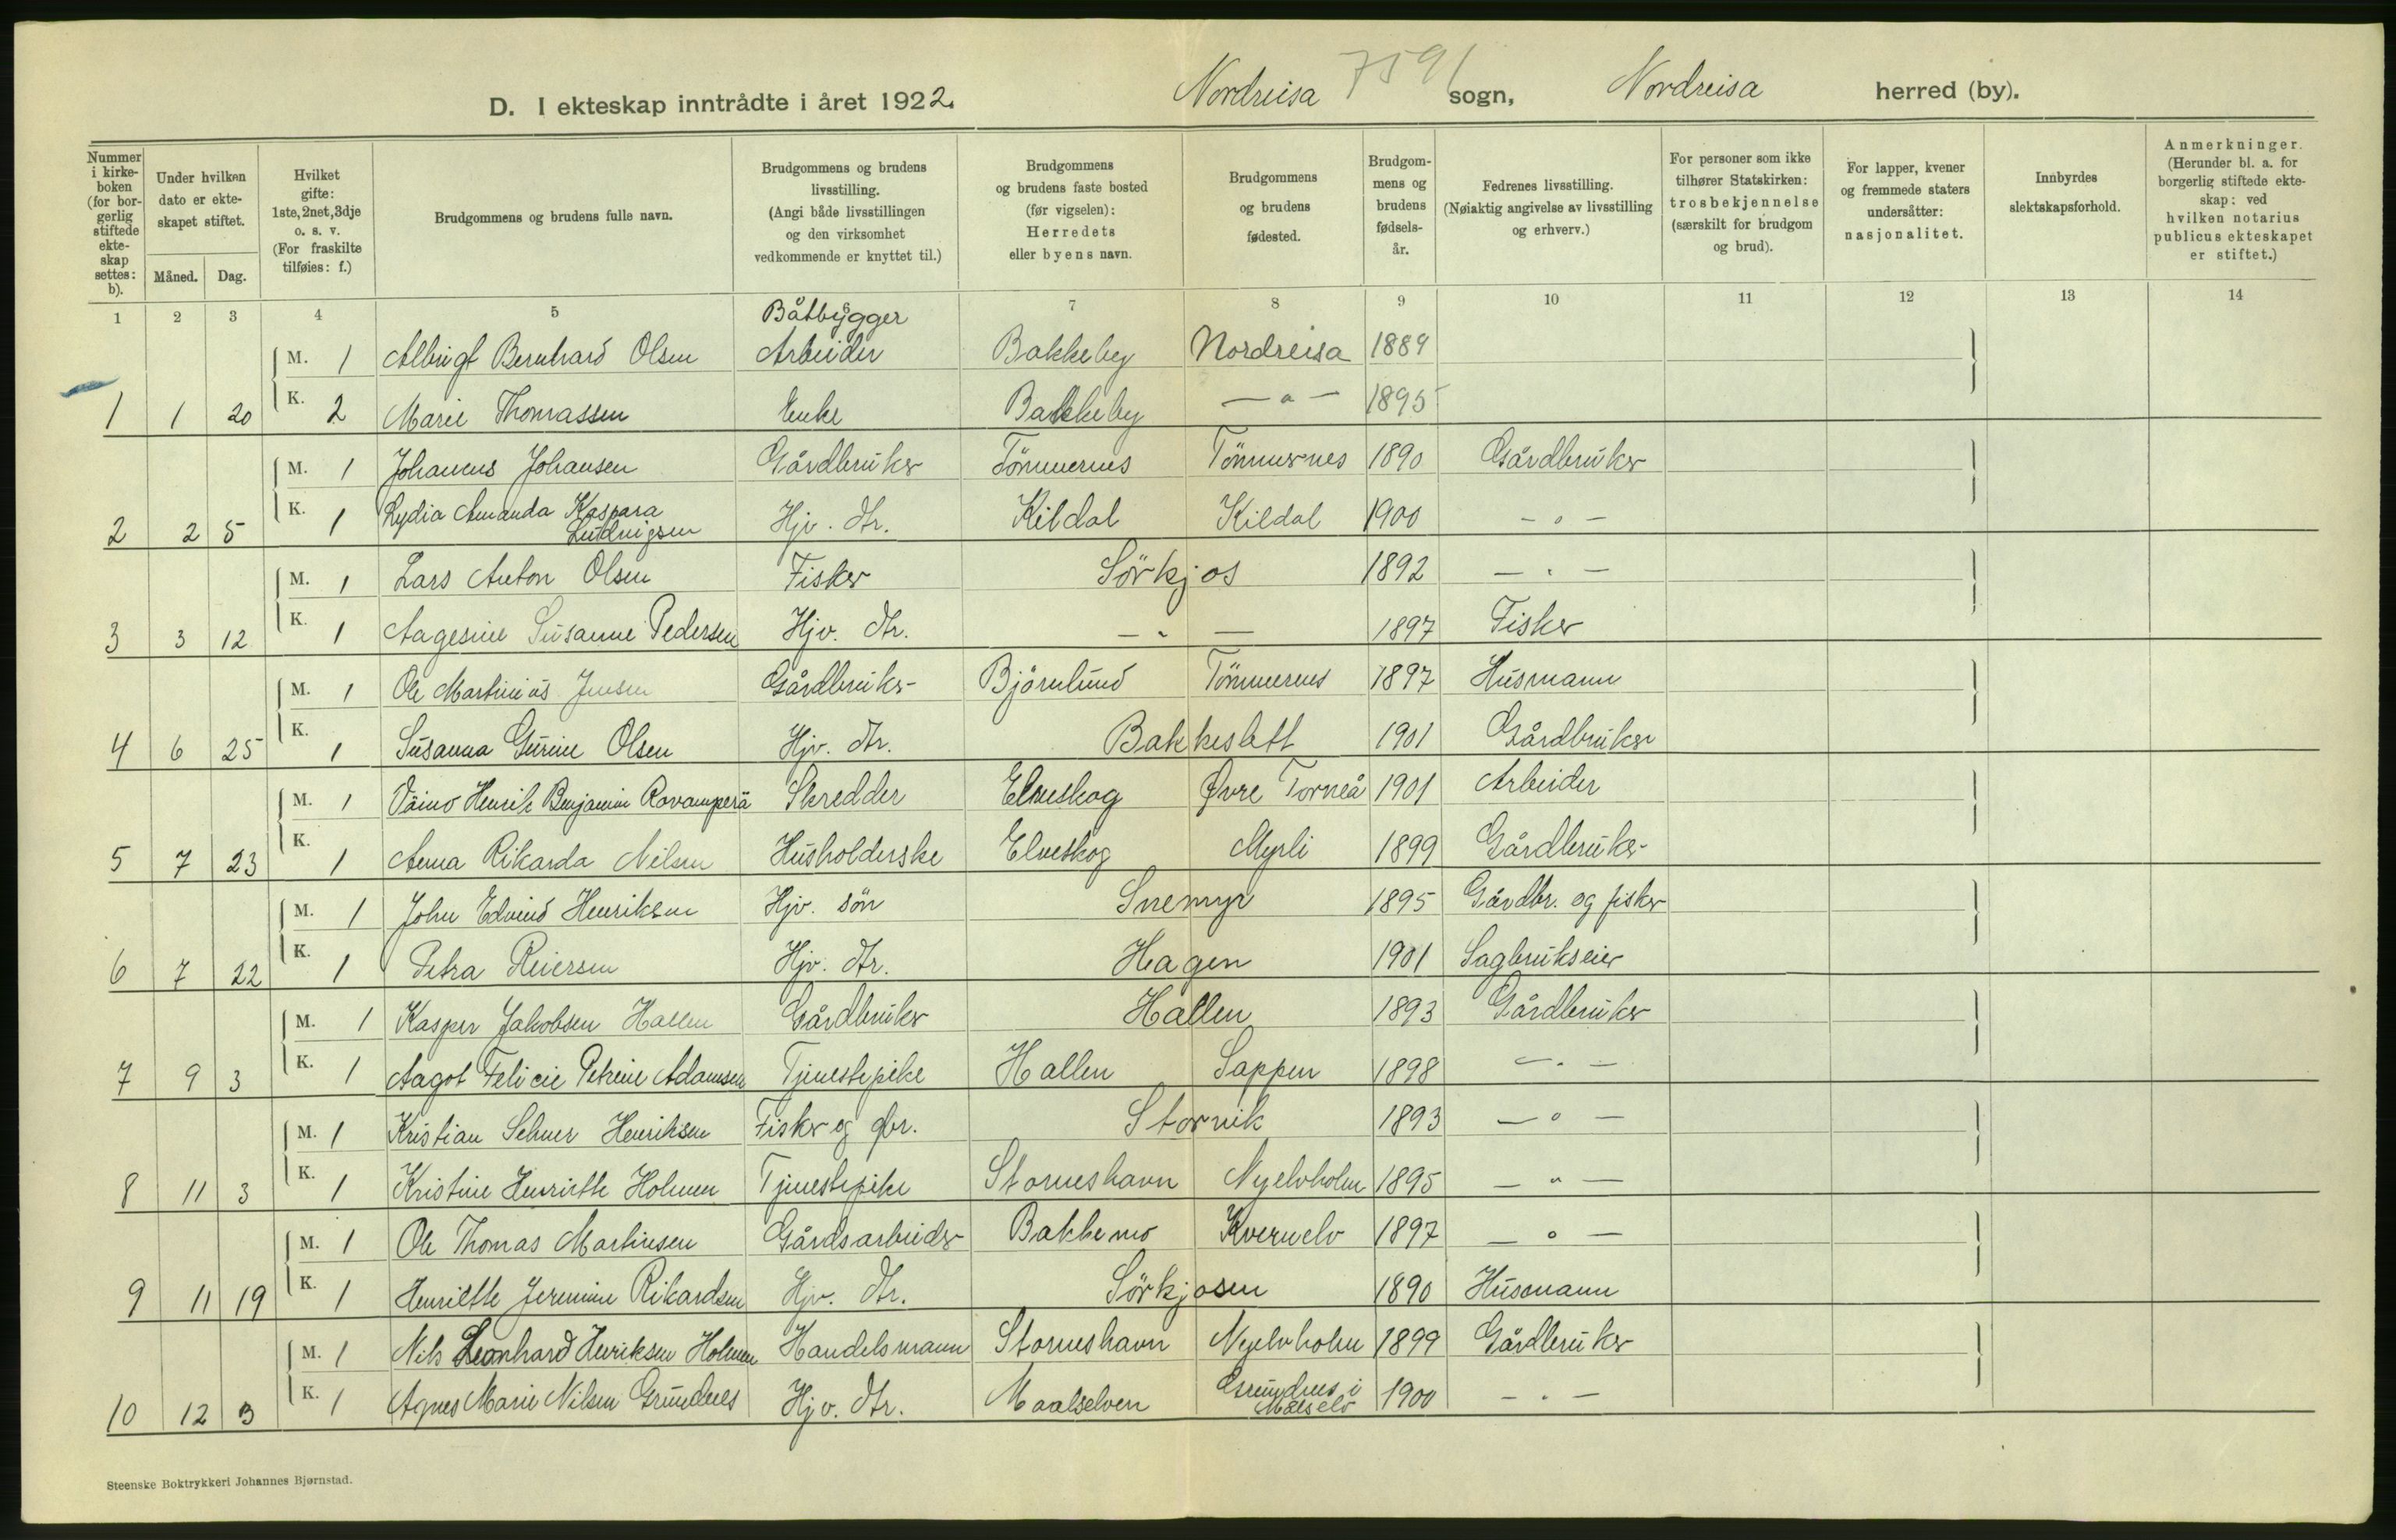 7591
D. I ekteskap inntrådte i året 1922. Nordreisa sogn, Nordreisa herred (by).
Nummer i kirkeboken (for borgerlig stiftede ekteskap settes: b).
Under hvilken dato er ekteskapet stiftet.
Måned. Dag.
Hvilket gifte: 1ste, 2net, 3dje o. s. v. (For fraskilte tilføies: f.)
Brudgommens og brudens fulle navn.
Brudgommens og brudens livsstilling. (Angi både livsstillingen og den virksomhet vedkommende er knyttet til.)
Brudgommens og brudens faste bosted (før vigselen): Herredets eller byens navn.
Brudgommens og brudens fødested.
Brudgommens og brudens fødselsår.
Fedrenes livsstilling. (Nøiaktig angivelse av livsstilling og erhverv.)
For personer som ikke tilhører Statskirken: trosbekjennelse (særskilt for brudgom og brud).
For lapper, kvener og fremmede staters undersåtter: nasjonalitet.
Innbyrdes slektskapsforhold.
Anmerkninger. (Herunder bl. a. for borgerlig stiftede ekteskap: ved hvilken notarius publicus ekteskapet er stiftet.)
1 2 3 4 5 6 7 8 9 10 11 12 13 14
Båtbygger
M. 1 Albrigt Bernhard Olsen Arbeider Bakkeby Nordreisa 1889
1 1 20 K. 2 Marie Thomassen Enke Bakkeby — " — 1895
M. 1 Johannes Johansen Gårdbruker Tömmernes Tömmernes 1890 Gårdbruker
2 2 5 K. 1 Lydia Amanda Kaspara Ludvigsen Hjv. dtr. Kildal Kildal 1900 — " —
M. 1 Lars Anton Olsen Fisker Sörkjos 1892 — " —
3 3 12 K. 1 Aagesine Susanne Pedersen Hjv. dtr. — " — 1897 Fisker
M. 1 Ole Martinius Jensen Gårdbruker Bjørnlund Tömmernes 1897 Husmann
4 6 25 K. 1 Susanna Gurine Olsen Hjv. dtr. Bakkeslett 1901 Gårdbruker
M. 1 Väino Henrik Benjamin Rovamperä Skredder Elveskog Øvre Torneå 1901 Arbeider
5 7 23 K. 1 Anna Rikarda Nilsen Husholderske Elveskog Myrli 1899 Gårdbruker
M. 1 John Edvind Henriksen Hjv. sön Snemyr 1895 Gårdbr. og fisker
6 7 22 K. 1 Petra Reiersen Hjv. dtr. Hagen 1901 Sagbrukseier
M. 1 Kasper Jakobsen Hallen Gårdbruker Hallen 1893 Gårdbruker
7 9 3 K. 1 Aagot Felicie Petrine Adamsen Tjenestepike Hallen Sappen 1898 — " —
M. 1 Kristian Selmer Henriksen Fisker og gbr. Storvik 1893 — " —
8 11 3 K. 1 Kristine Henriette Holmen Tjenestepike Storneshavn Nyelvholm 1895 — " —
M. 1 Ole Thomas Martinsen Gårdsarbeider Bakkemo Kvernelv 1897 — " —
9 11 19 K. 1 Henriette Jeremine Rikardsen Hjv. dtr. Sörkjosen 1890 Husmann
M. 1 Nils Leonhard Henriksen Holmen Handelsmann Storneshavn Nyelvholm 1899 Gårdbruker
10 12 3 K. 1 Agnes Marie Nilsen Grundnes Hjv. dtr. Maalselven Grundnes i Målselv 1900 — " —
Steenske Boktrykkeri Johannes Bjørnstad.